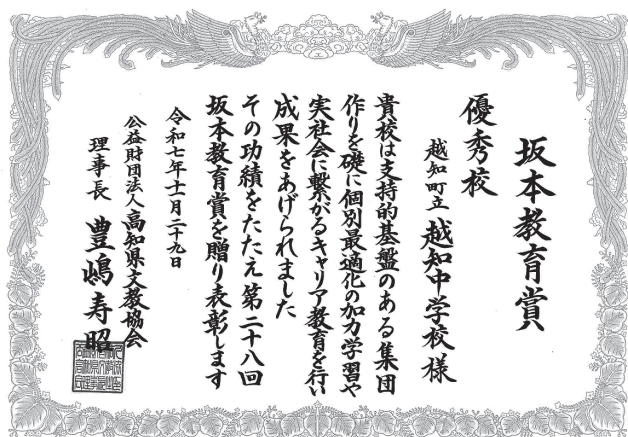 坂本教育賞
優秀校
越知町立 越知中学校様
貴校は支持的基盤のある集団
作りを礎に個別最適化の加力学習や
実社会に繋がるキャリア教育を行い
成果をあげられました
その功績をたたえ第二十八回
坂本教育賞を贈り表彰します
令和七年十一月二十九日
公益財団法人高知県文教協会
理事長 豊嶋寿昭